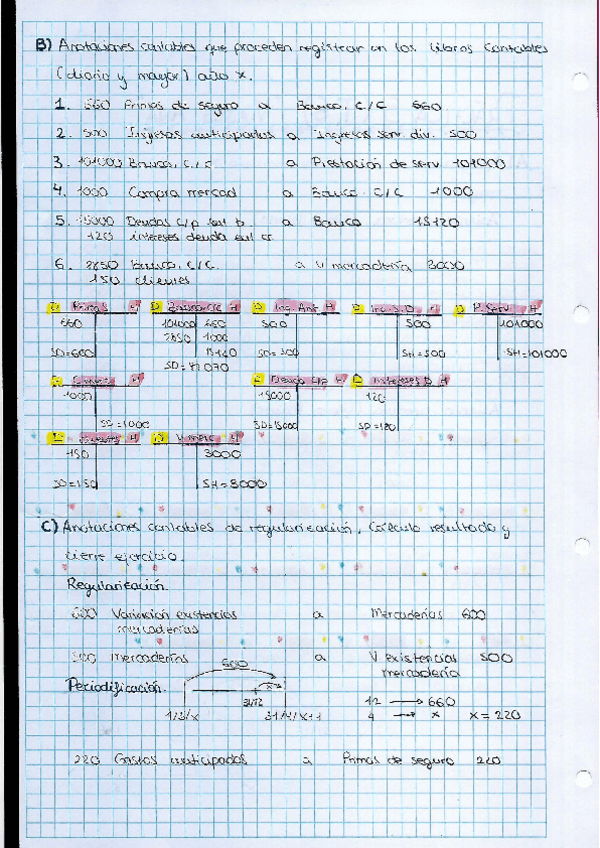 B) Anotaciones contables que proceden registrar en los libros contables
(diario y mayor) año x.
1. 660 Primas de seguro a Banco, C/C 660
2. 500 Ingresos anticipados a Ingresos serv div. 500
3. 101000 Banco, C/C a Prestación de serv 101000
4. 1000 Compra mercad a Banco C/C 1000
5. 15000 Deudas C/p a Banco 15120
120 intereses deuda
6. 2850 Banco, C/C. a V mercadería 3000
150 clientes
D Primas H D Banco C/C H D Ing. Ant H D H D P. Serv. H
660 101000 660 500 500 101000
2850 1000
SD=600 SD=500 SH=500 SH=101000
D H D Deuda C/p H D Intereses D H
1000 15000 120
SD=1000 SD=15000 SD=120
H D H
150 3000
SD=150 SH=3000
C) Anotaciones contables de regularización, cálculo resultado y
cierre ejercicio.
Regularización.
600 Variación existencias a Mercaderías 600
mercaderías
500 mercaderías a V existencias 500
mercadería
Periodificación. 660
x
31/12 12 → 660
1/5/x 4 → x x = 220
220 Gastos anticipados a Primas de seguro 220